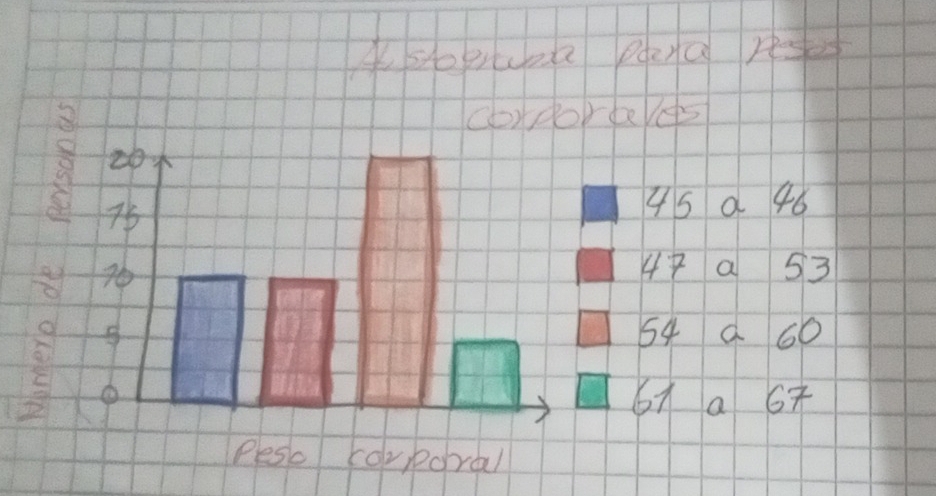 Histograma para pesos
corporales
Numero de personas
20
15
10
5
0
45 a 46
47 a 53
54 a 60
61 a 67
Peso corporal